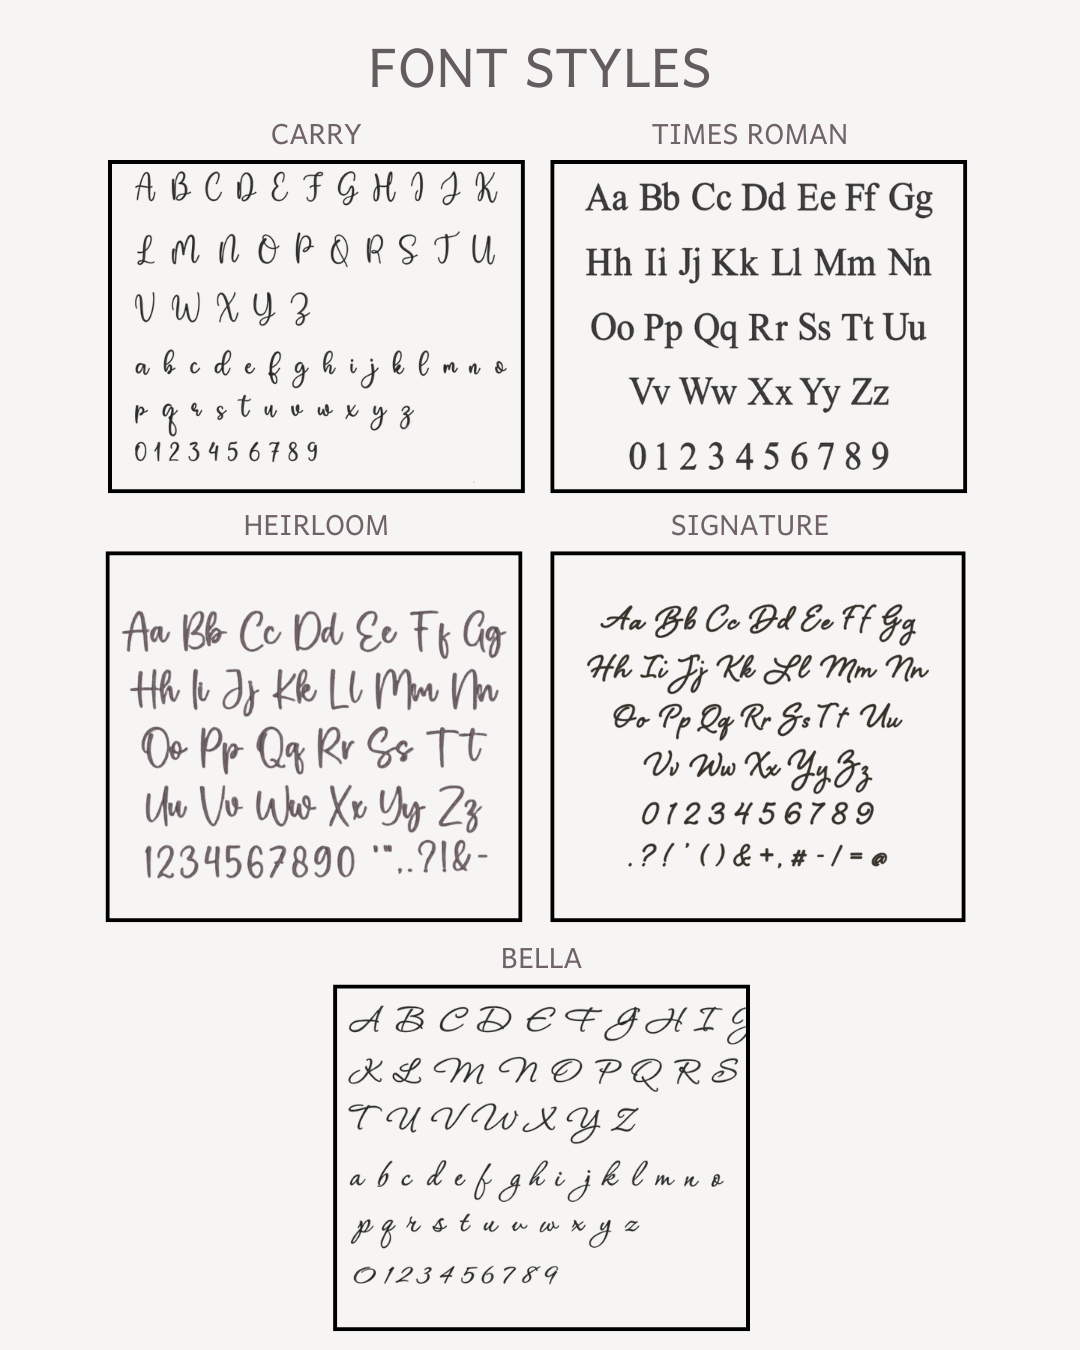 FONT STYLES
CARRY
A B C D E F G H I J K
L M N O P Q R S T U
V W X Y Z
a b c d e f g h i j k l m n o
p q r s t u v w x y z
0 1 2 3 4 5 6 7 8 9
TIMES ROMAN
Aa Bb Cc Dd Ee Ff Gg
Hh Ii Jj Kk Ll Mm Nn
Oo Pp Qq Rr Ss Tt Uu
Vv Ww Xx Yy Zz
0 1 2 3 4 5 6 7 8 9
HEIRLOOM
Aa Bb Cc Dd Ee Ff Gg
Hh Ii Jj Kk Ll Mm Nn
Oo Pp Qq Rr Ss Tt
Uu Vv Ww Xx Yy Zz
1234567890 '",.?!&-
SIGNATURE
Aa Bb Cc Dd Ee Ff Gg
Hh Ii Jj Kk Ll Mm Nn
Oo Pp Qq Rr Ss Tt Uu
Vv Ww Xx Yy Zz
0 1 2 3 4 5 6 7 8 9
. ? ! ' ( ) & + , # - / = @
BELLA
A B C D E F G H I J
K L M N O P Q R S
T U V W X Y Z
a b c d e f g h i j k l m n o
p q r s t u v w x y z
0 1 2 3 4 5 6 7 8 9